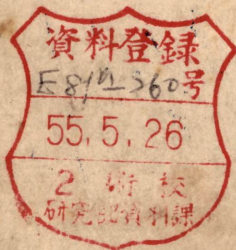 資料登録
E 81 - 360号
55.5.26
2 術校
研究部資料課